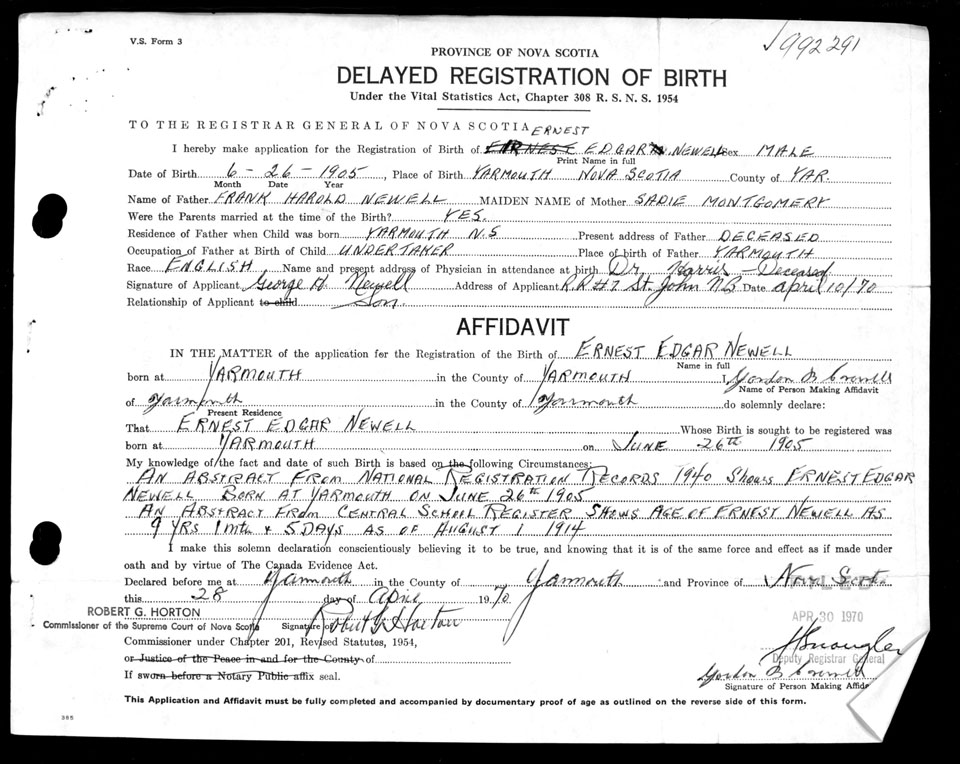 V.S. Form 3
992291
PROVINCE OF NOVA SCOTIA
DELAYED REGISTRATION OF BIRTH
Under the Vital Statistics Act, Chapter 308 R. S. N. S. 1954
TO THE REGISTRAR GENERAL OF NOVA SCOTIA ERNEST
I hereby make application for the Registration of Birth of ERNEST EDGAR NEWELL Sex MALE
Print Name in full
Date of Birth 6 - 26 - 1905, Place of Birth YARMOUTH NOVA SCOTIA County of YAR.
Month Date Year
Name of Father FRANK HAROLD NEWELL MAIDEN NAME of Mother SADIE MONTGOMERY
Were the Parents married at the time of the Birth? YES.
Residence of Father when Child was born YARMOUTH N.S Present address of Father DECEASED
Occupation of Father at Birth of Child UNDERTAKER Place of birth of Father YARMOUTH
Race ENGLISH Name and present address of Physician in attendance at birth Dr. Harris - Deceased
Signature of Applicant George H. Newell Address of Applicant R.R #7 St. John N.B Date April 10/70
Relationship of Applicant to child Son.
AFFIDAVIT
IN THE MATTER of the application for the Registration of the Birth of ERNEST EDGAR NEWELL
Name in full
born at YARMOUTH in the County of YARMOUTH I, Gordon B
Name of Person Making Affidavit
of Yarmouth in the County of Yarmouth do solemnly declare:
Present Residence
That ERNEST EDGAR NEWELL Whose Birth is sought to be registered was
born at YARMOUTH on JUNE 26th 1905
My knowledge of the fact and date of such Birth is based on the following Circumstances:
AN ABSTRACT FROM NATIONAL REGISTRATION RECORDS 1940 SHOWS ERNEST EDGAR
NEWELL BORN AT YARMOUTH ON JUNE 26th 1905
AN ABSTRACT FROM CENTRAL SCHOOL REGISTER SHOWS AGE OF ERNEST NEWELL AS
9 YRS 1 MTH & 5 DAYS AS OF AUGUST 1 1914
I make this solemn declaration conscientiously believing it to be true, and knowing that it is of the same force and effect as if made under
oath and by virtue of The Canada Evidence Act.
Declared before me at Yarmouth in the County of Yarmouth and Province of Nova Scotia
this 28 day of April 1970
ROBERT G. HORTON
APR 30 1970
Commissioner of the Supreme Court of Nova Scotia Signature of Robert G Horton
Commissioner under Chapter 201, Revised Statutes, 1954,
Deputy Registrar General
or Justice of the Peace in and for the County of
If sworn before a Notary Public affix seal.
Gordon B
Signature of Person Making Affida
This Application and Affidavit must be fully completed and accompanied by documentary proof of age as outlined on the reverse side of this form.
385